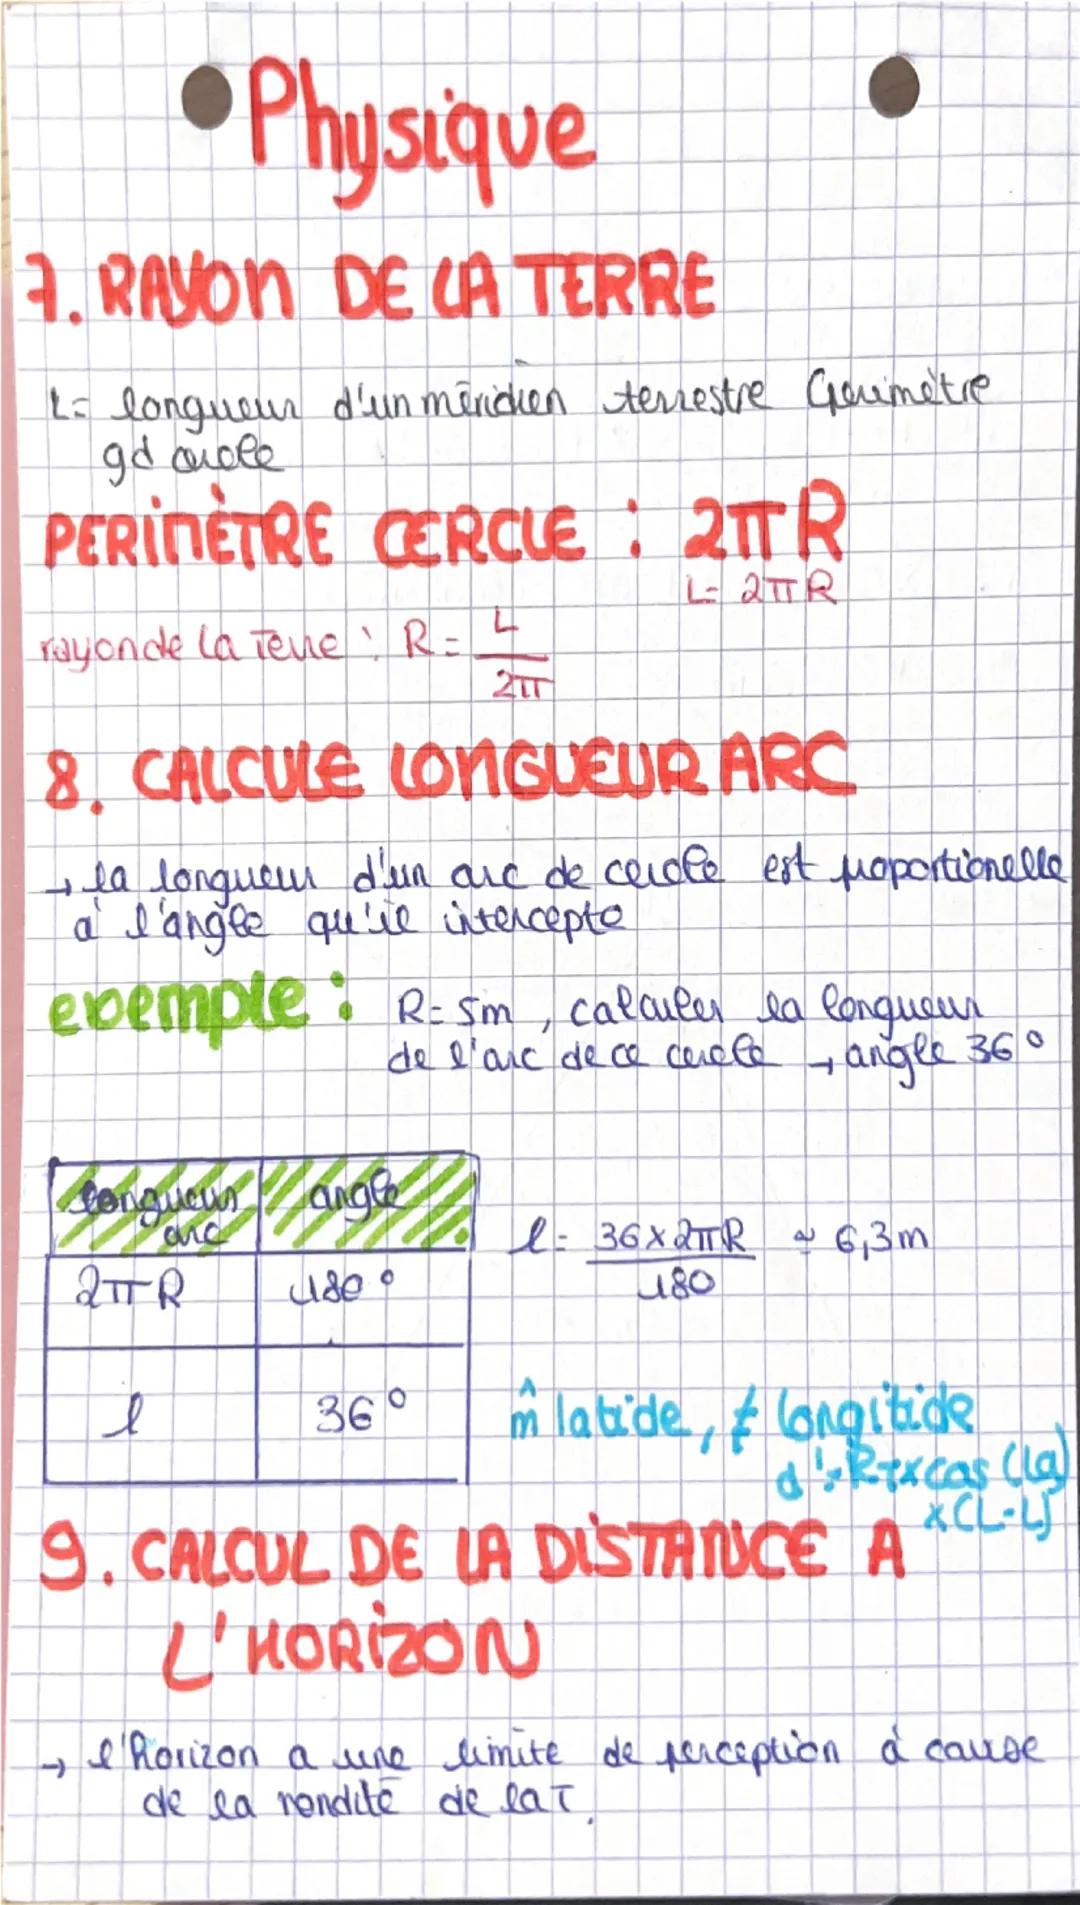 Physique
7. RAYON DE LA TERRE
L= longueur d'un méridien terrestre
gd cercle
PERIMÈTRE CERCLE : 2πR
L= 2πR
rayon de la Terre : R = L
2π
8. CALCULE LONGUEUR ARC
→ la longueur d'un arc de cercle est proportionelle
à l'angle qu'il intercepte
exemple : R= 5m, calculer la longueur
de l'arc de ce cercle → angle 36°
longueur arc
angle
2πR
180°
l
36°
l= 36×2πR ≈ 6,3m
180
m̂ latide, ≠ longitide
d'= RT×cos (la)
×(L-L)
9. CALCUL DE LA DISTANCE A
L'HORIZON
→ l'horizon a une limite de perception à cause
de la rondité de la T.